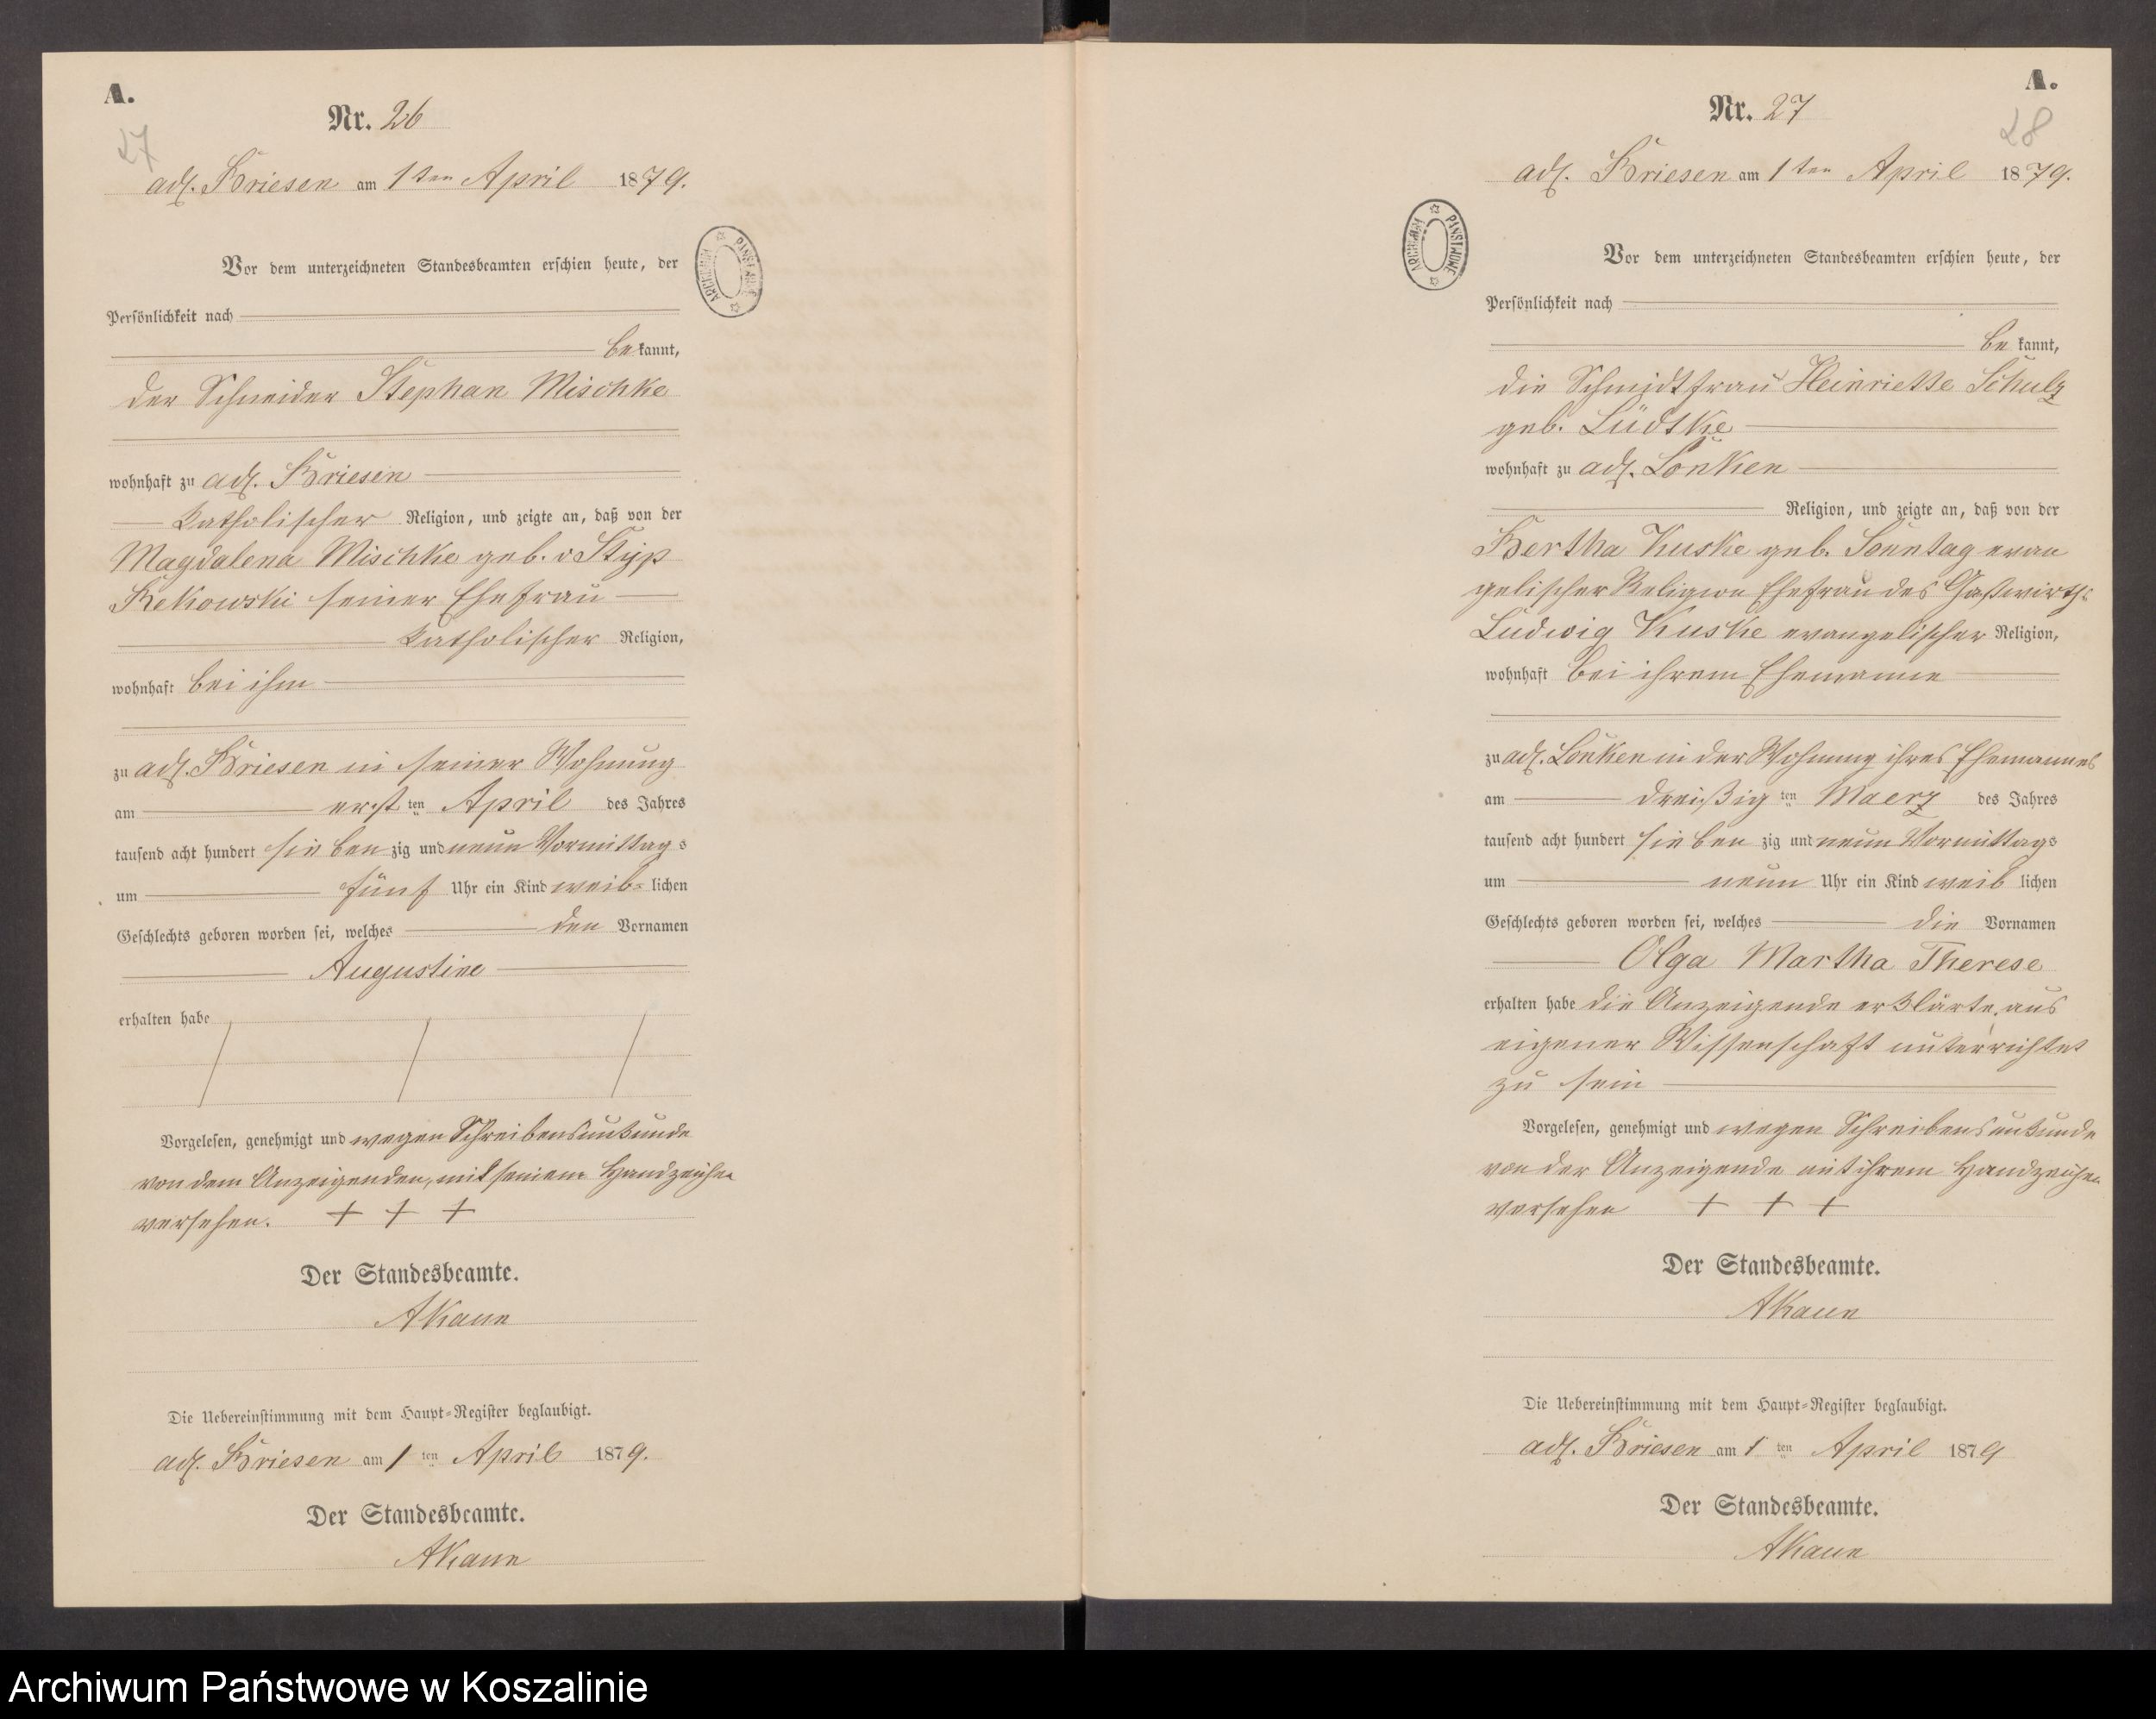 A.
Nr. 26
27
adl. Briesen am 1ten April 1879.
Vor dem unterzeichneten Standesbeamten erschien heute, der
Persönlichkeit nach
bekannt,
der Schneider Stephan Mischke
wohnhaft zu adl. Briesen
katholischer Religion, und zeigte an, daß von der
Magdalena Mischke geb. v Styp
Rekowski seiner Ehefrau
katholischer Religion,
wohnhaft bei ihm
zu adl. Briesen in seiner Wohnung
am ersten April des Jahres
tausend acht hundert siebenzig und neun Vormittags
um fünf Uhr ein Kind weib-lichen
Geschlechts geboren worden sei, welches den Vornamen
Augustine
erhalten habe
Vorgelesen, genehmigt und wegen Schreibensunkunde
von dem Anzeigenden, mit seinem Handzeichen
versehen. + + +
Der Standesbeamte.
AKaun
Die Uebereinstimmung mit dem Haupt-Register beglaubigt.
adl. Briesen am 1ten April 1879.
Der Standesbeamte.
AKaun
ARCHIWUM PAŃSTWOWE
A.
Nr. 27
28
adl. Briesen am 1ten April 1879.
ARCHIWUM PAŃSTWOWE
Vor dem unterzeichneten Standesbeamten erschien heute, der
Persönlichkeit nach
bekannt,
die Schmidtfrau Heinriette Schulz
geb. Lüdtke
wohnhaft zu adl. Lonken
Religion, und zeigte an, daß von der
Bertha Kuske geb. Sonntag evan
gelischer Religion Ehefrau des Gastwirths
Ludwig Kuske evangelischer Religion,
wohnhaft bei ihrem Ehemanne
zu adl. Lonken in der Wohnung ihres Ehemannes
am dreißigten Maerz des Jahres
tausend acht hundert siebenzig und neun Vormittags
um neun Uhr ein Kind weiblichen
Geschlechts geboren worden sei, welches die Vornamen
Olga Martha Therese
erhalten habe die Anzeigende erklärte, aus
eigener Wissenschaft unterrichtet
zu sein
Vorgelesen, genehmigt und wegen Schreibensunkunde
von der Anzeigende mit ihrem Handzeichen
versehen + + +
Der Standesbeamte.
AKaun
Die Uebereinstimmung mit dem Haupt-Register beglaubigt.
adl. Briesen am 1ten April 1879
Der Standesbeamte.
AKaun
Archiwum Państwowe w Koszalinie